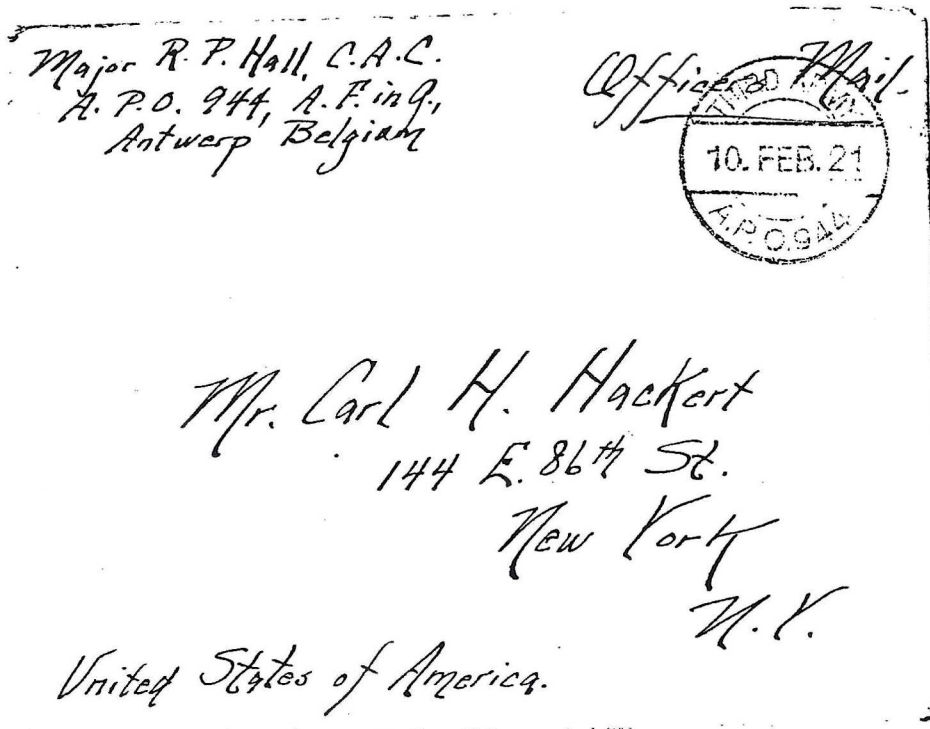 Major R. P. Hall, C.A.C.
A. P. O. 944, A. F. in G.,
Antwerp Belgiam
Officers Mail.
10. FEB. 21
A.P.O. 944
Mr. Carl H. Hackert
144 E. 86th St.
New York
N.Y.
United States of America.